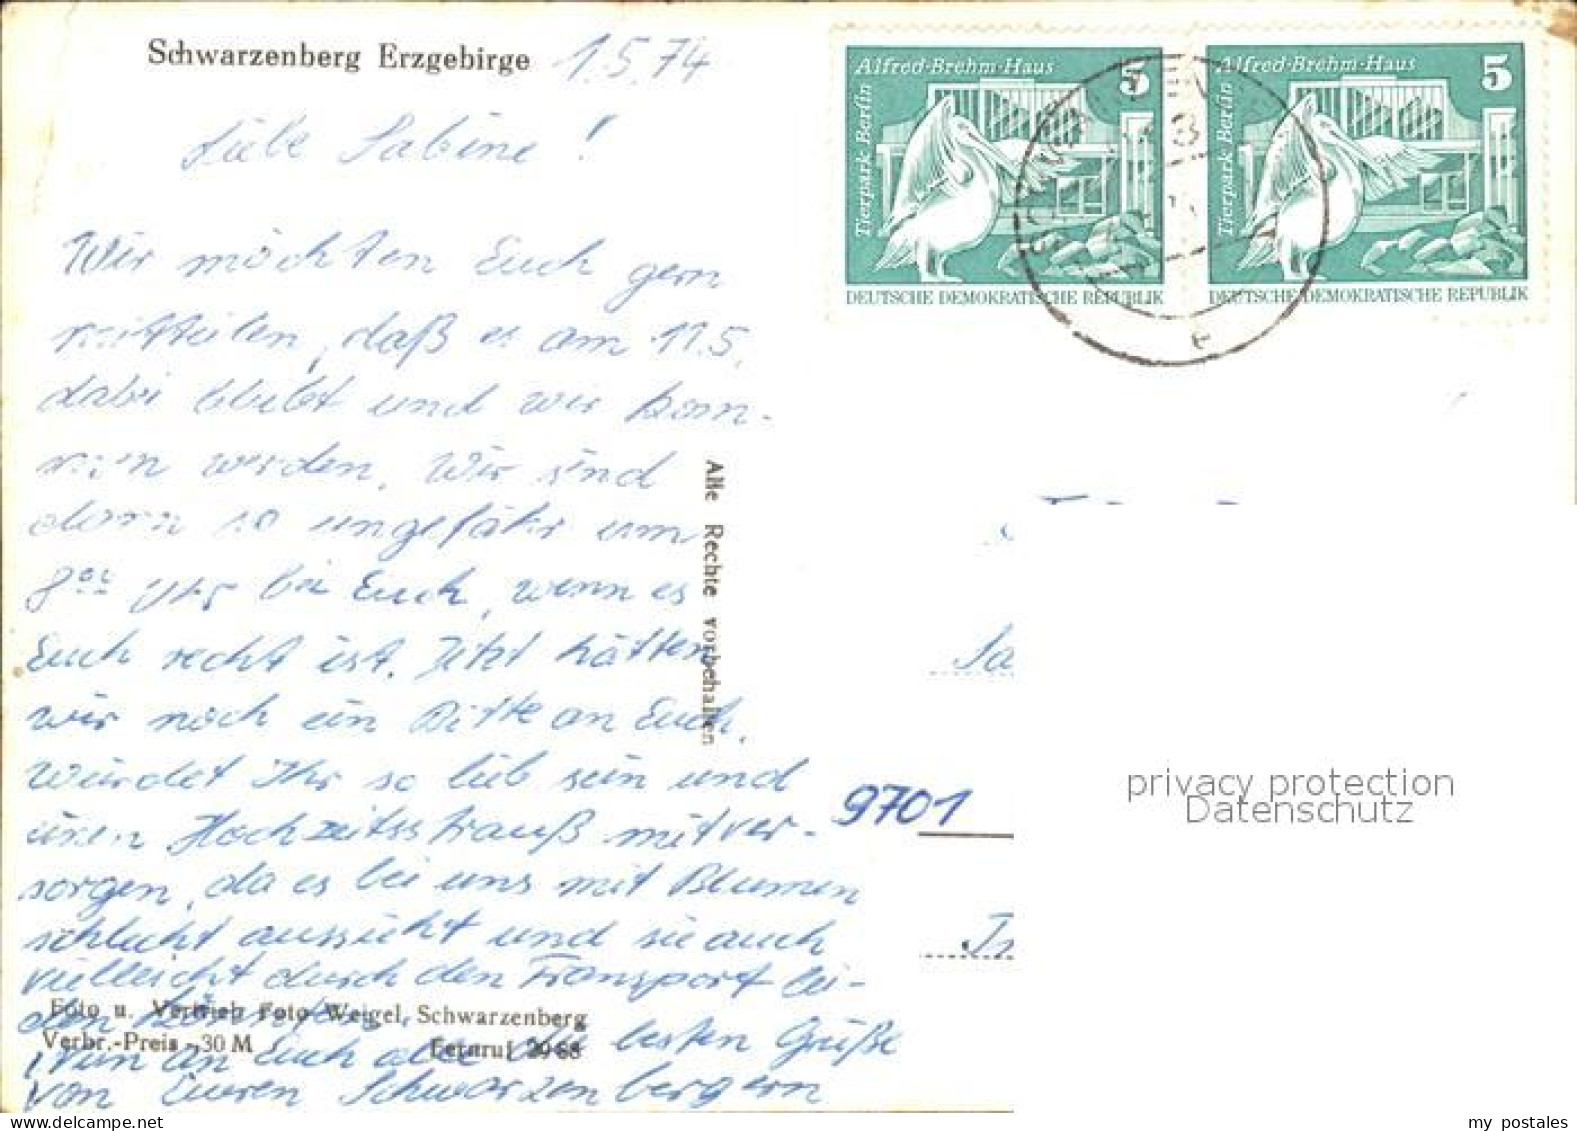 Schwarzenberg Erzgebirge 1.5.74
Liebe Sabine!
Wir möchten Euch gern
mitteilen, daß es am 11.5.
dabei bleibt und wir kom-
men werden. Wir sind
dann so ungefähr um
8⁰⁰ Uhr bei Euch, wenn es
Euch recht ist. Jetzt hätten
wir noch ein Bitte an Euch.
Würdet Ihr so lieb sein und
Hochzeitsstrauß mitver-
sorgen, da es bei uns mit Blumen
schlecht aussieht und sie auch
vielleicht durch den Transport lei-
den könnten.
Nun an Euch alle die besten Grüße
von Euren Schwarzenbergern
Foto u. Vertrieb Foto Weigel, Schwarzenberg
Verbr.-Preis -,30 M Fernruf 29 68
Alle Rechte vorbehalten
Alfred-Brehm-Haus 5
Tierpark Berlin
DEUTSCHE DEMOKRATISCHE REPUBLIK
Alfred-Brehm-Haus 5
Tierpark Berlin
DEUTSCHE DEMOKRATISCHE REPUBLIK
Sa
9701
privacy protection
Datenschutz
my postales